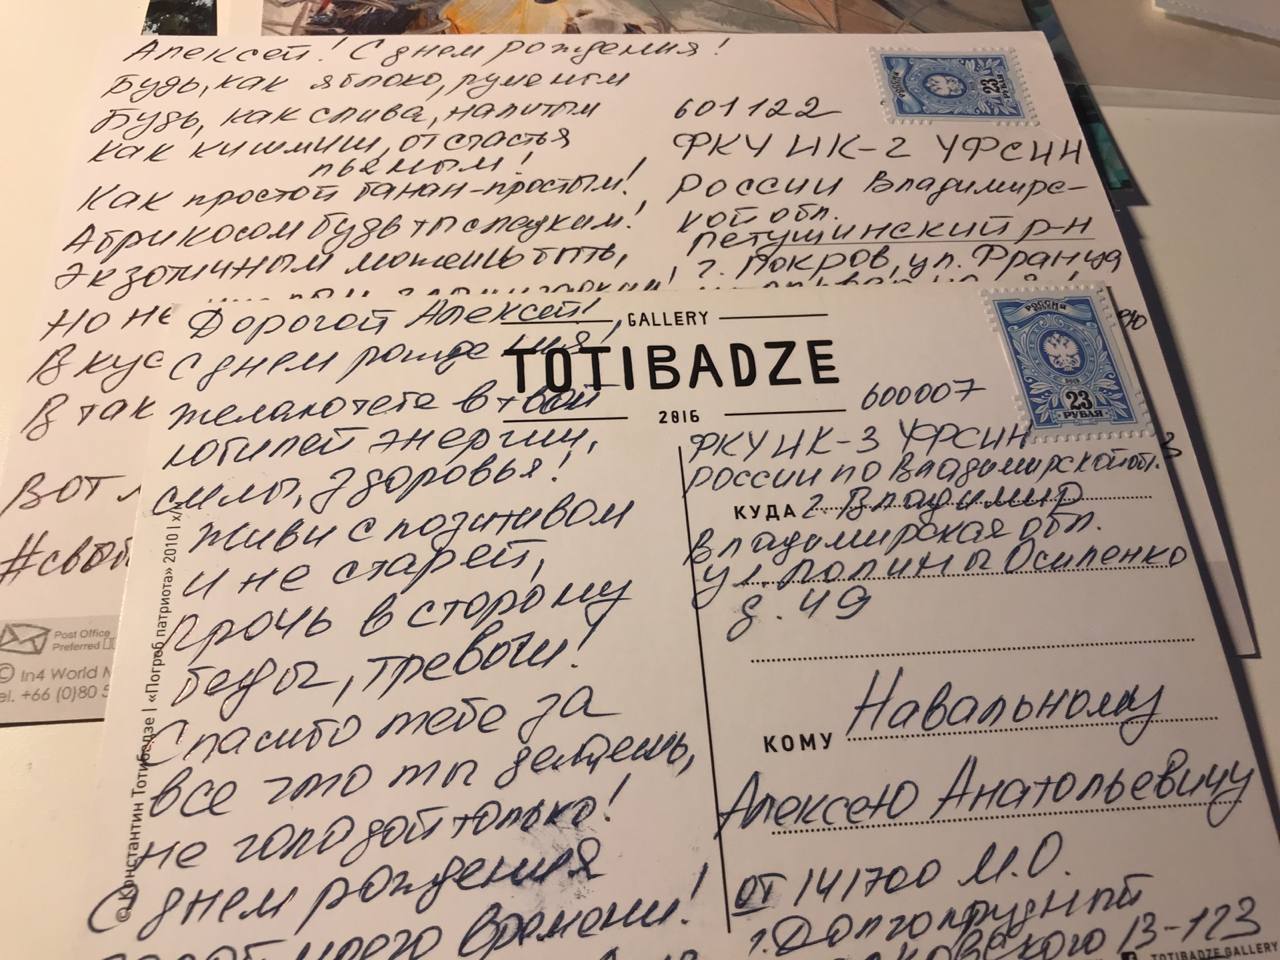 Алексей! С днем рождения!
Будь, как яблоко, румяным
Будь, как слива, налитым
как кишмиш, от счастья
пьяным!
Как простой банан-простым!
Абрикосом будь ты сладким!
Экзотичным можешь быть,
Но не
В кус
В так
Вот
#своб
601122
ФКУ ИК-2 УФСИН
России Владимирс-
кой обл.
Петушинский р-н
г. Покров, ул. Франца
РОССИЯ
23
Post Office
Preferred
© In4 World M
el. +66 (0)80 5
Дорогой Алексей!
С днем рождения,
желаю тебе в твой
юбилей энергии,
силы, здоровья!
Живи с позитивом
и не старей,
Прочь в сторону
беды, тревоги!
Спасибо тебе за
все что ты делаешь,
не голодай только!
С днем рождения
моего времени!
GALLERY
TOTIBADZE
2016
РОССИЯ
23
РУБЛЯ
600007
ФКУ ИК-3 УФСИН
России по Владимирской об.
КУДА г. Владимир
Владимирская обл.
ул. Полины Осипенко
д. 49
КОМУ Навальному
Алексею Анатольевичу
от 141700 М.О.
г. Долгопрудный
13-123
TOTIBADZE GALLERY
© Константин Тотибадзе | «Погреб патриота» 2010 | х/м